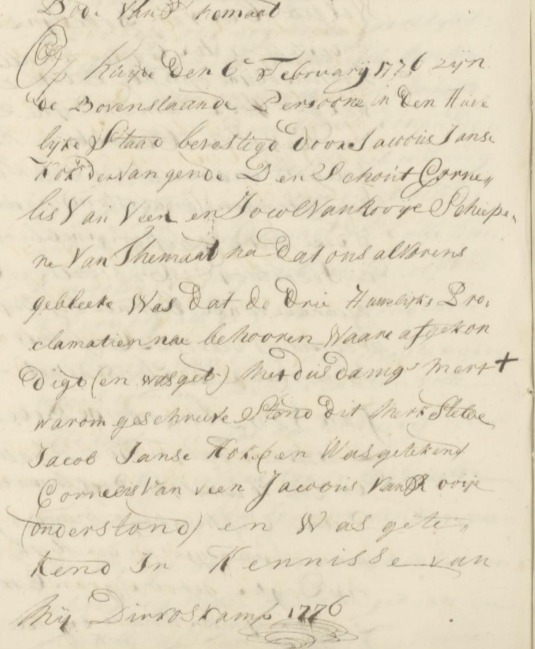 Dod. Van T hemaat
Op Huijde Den 6 February 1776 zijn
de Bovenstaande Persoone in Den Huwe
lyke Staad bevestigd door Jacobus Janse
Kok vervangende Den Schout Corne,,
lis Van Veen en Jacob Van Rooije Schepe,
ne Van Themaat na Dat ons alvorens
gebleeke Was Dat de Drie Huwelijks Pro,
clamatien na behooren Waare afgekon
Digt (en was get.) Met dus danig Merk +
waarom geschreve Stond Dit Merk Stelde
Jacob Janse Kok (en Was getekend
Cornelis Van veen Jacobus Van Rooije
(onderstond) en Was gete,
kend In Kennisse van
Mij 1776